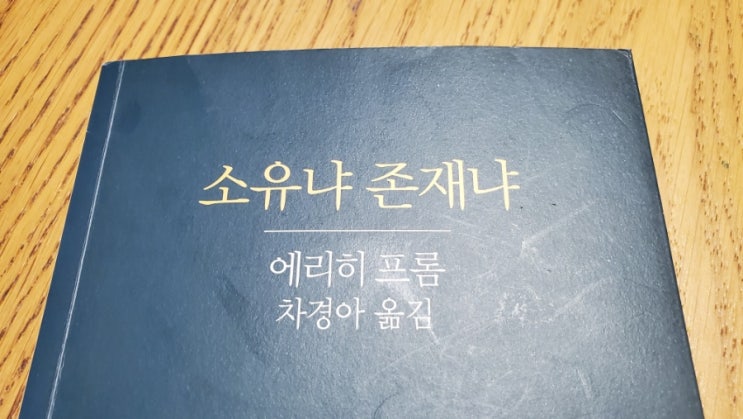 소유냐 존재냐
에리히 프롬
차경아 옮김